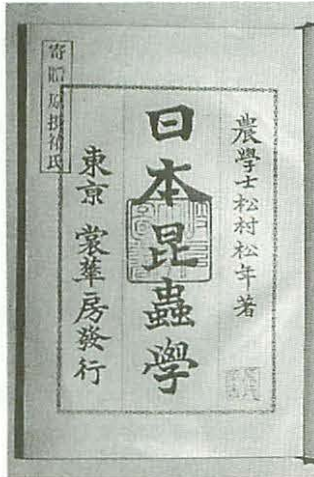 農學士松村松年著
日本昆蟲學
東京 裳華房發行
寄贈 原摂祐氏